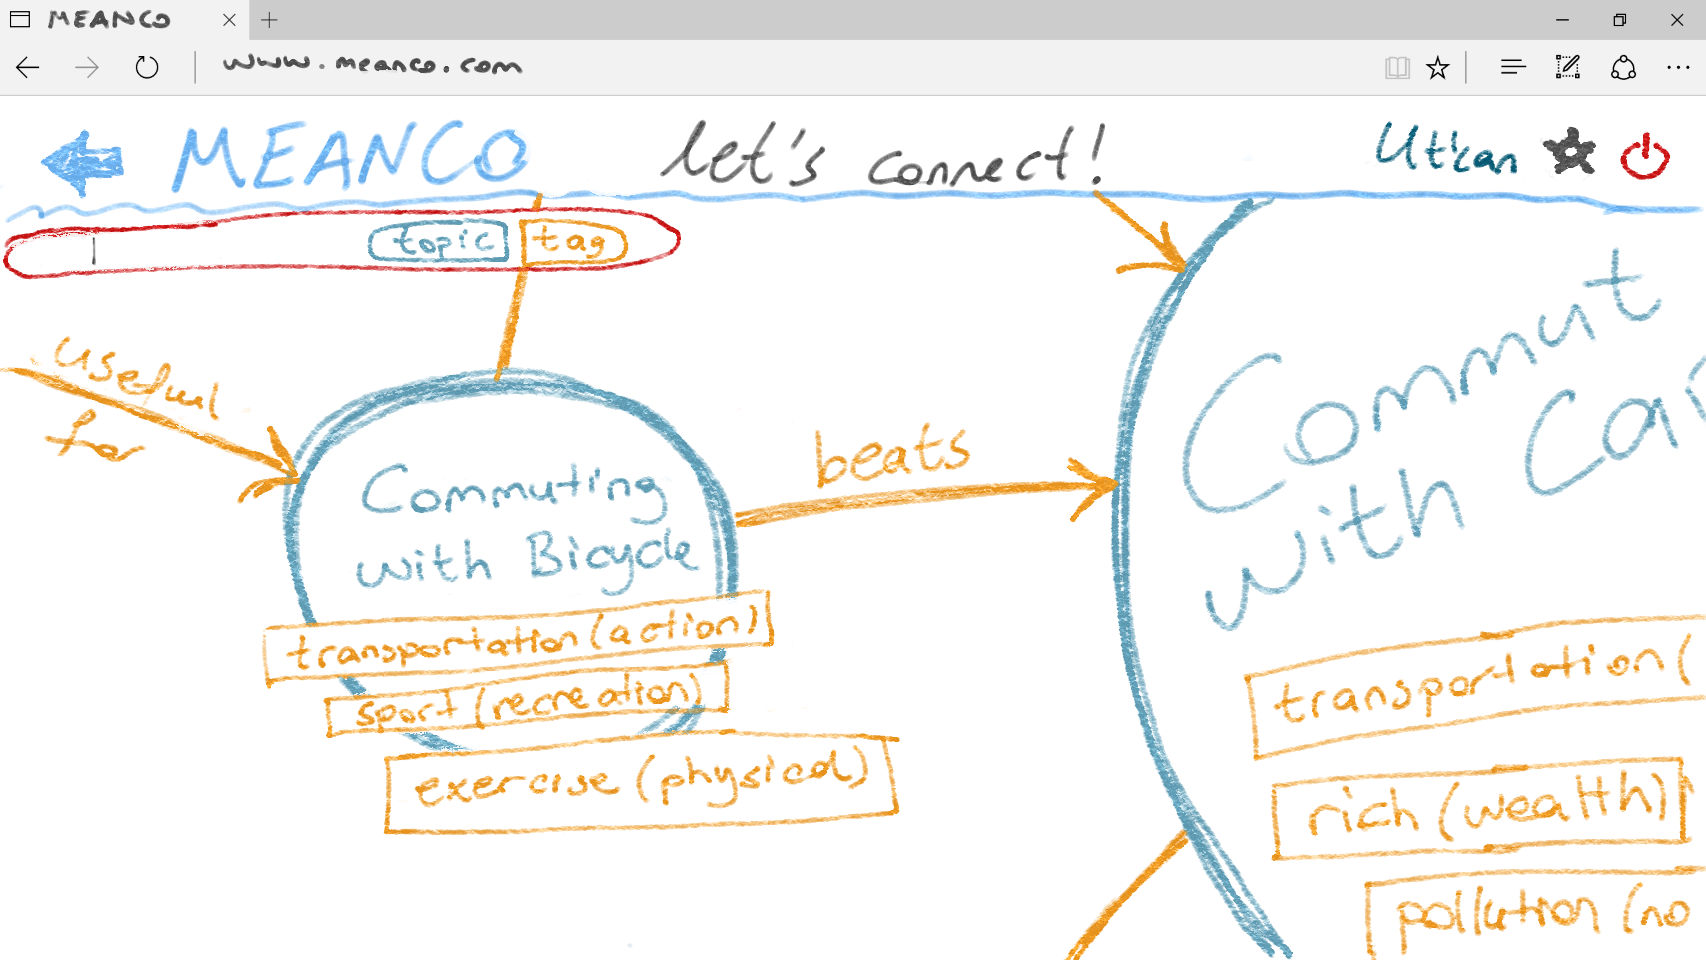 MEANCO
www.meanco.com
MEANCO let's connect! Utkan
topic tag
useful
for
beats
Commuting
with Bicycle
transportation (action)
sport (recreation)
exercise (physical)
Commut
with Car
transportation (
rich (wealth)
pollution (no